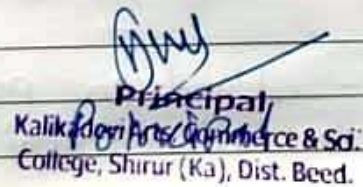 Principal,
Kalikadevi Arts, Commerce & Sci.
College, Shirur (Ka), Dist. Beed.